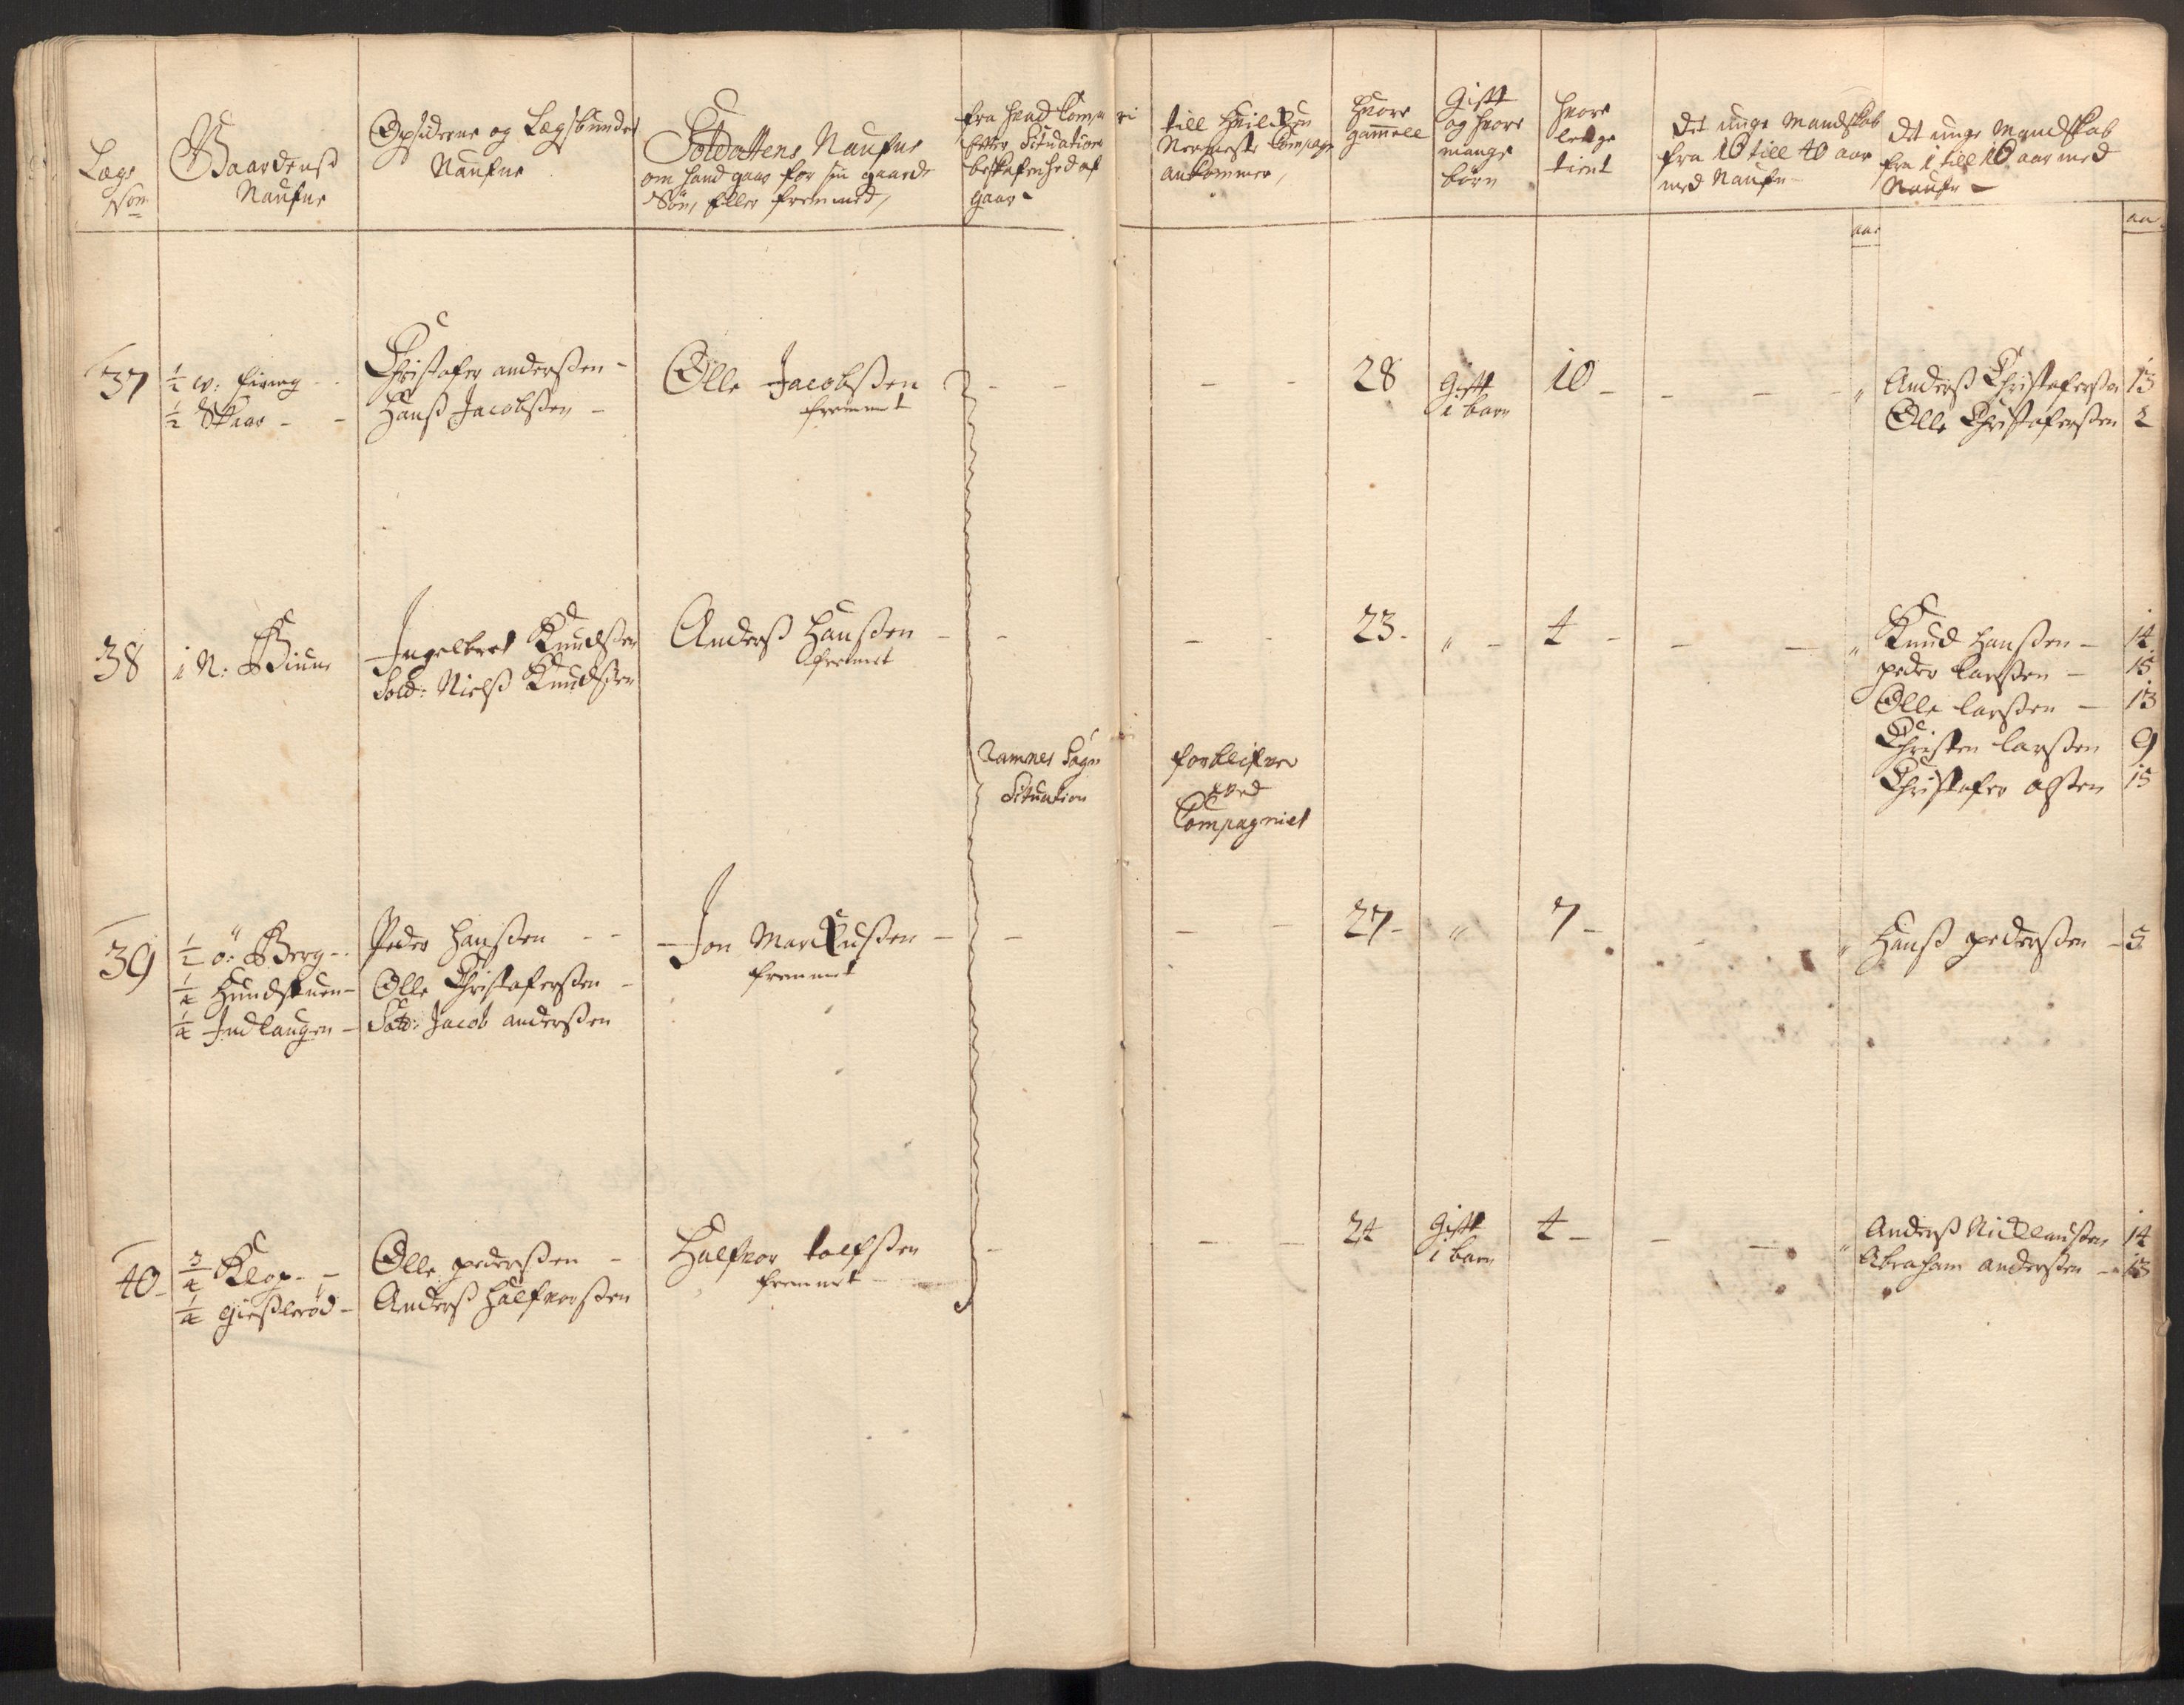 Lægs
Nom
Gaardenß
Naufne
Opsiderne og Lægsbundes
Naufne
Soldattens Naufne
om hand gaar for sin gaard
Sön, eller fremmed,
fra hvad Compagni
efter Situations
beskafenhed af
gaar
till Hvilcken
Nermeste Compag
ankommer,
Hvor
gammell
Gift
og hvor
mange
börn
hvor
lenge
tient
Det unge Mandskab
fra 16 till 40 aar
med Naufn
aar
Det unge Mandskab
fra 1 till 16 aar med
Naufn
aar
37
½ w: firing
½ Skaar
Christofer anderßen
Hanß Jacobßen
Olle Jacobßen
fremmet
28
Gift
1 barn
10
"
Anderß Christoferßen 13
Olle Christoferßen 2
38
1 N: Biune
Ingelbret Knudßen
Sold: Nielß Knudßen
Anderß Hanßen
fremmet
23
"
4
"
Knud Hanßen 14
peder larßen 15
Olle larßen 13
Christen larßen 9
Christofer olßen 15
Ramnes Sogn
Situation
forblifver
ved
Compagniet
39
½ ö: Berg
¼ Hundstuen
¼ Indlaugen
Peder Hanßen
Olle Christoferßen
Sold: Jacob anderßen
Jon Marckußen
fremmet
27
"
7
"
Hanß pederßen 5
40
¾ Klop
¼ gießlerød
Olle pederßen
Anderß Halfvorßen
Halfvor tolfßen
fremmet
24
Gift
1 barn
4
"
Anderß Nicklaußen 14
Abraham anderßen 13